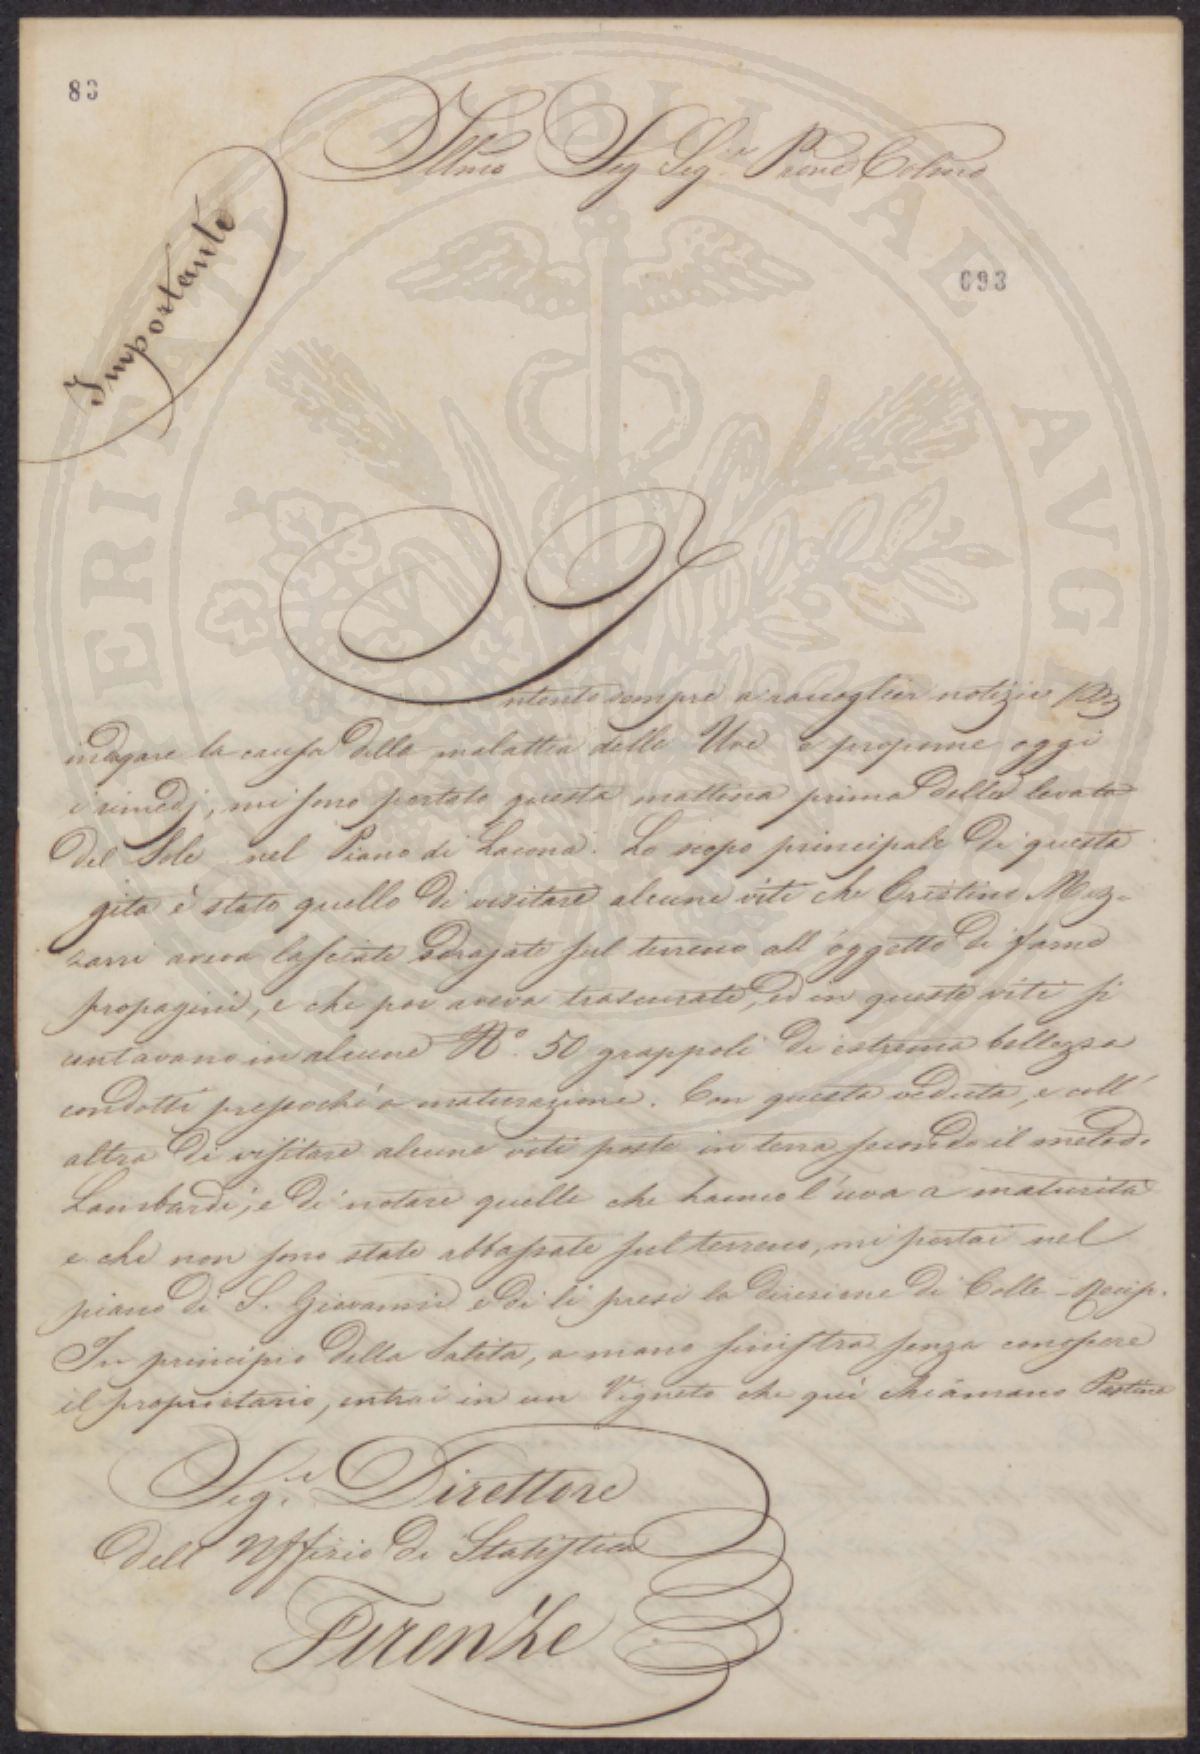 83
Illmo Sig Sig.e Prone Colmo
Importante
693
Intento sempre a raccoglier notizie per
indagare la causa della malattia delle Uve e proporne oggi
i rimedj, mi sono portato questa mattina prima della levata
del Sole nel Piano di Lacona. Lo scopo principale di questa
gita è stato quello di visitare alcune viti che Cristino Mez-
zarri aveva lasciate sdrajate sul terreno all'oggetto di farne
propagini, e che poi aveva trascurate, ed in queste viti si
contavano in alcune N.º 50 grappoli di estrema bellezza
condotti pressochè a maturazione. Con questa veduta, e coll'
altra di visitare alcune viti poste in terra secondo il metodo
Lambardi, e di notare quelle che hanno l'uva a maturità
e che non sono state abbassate sul terreno, mi portai nel
piano di S. Giovanni e di lì presi la direzione di Colle-Recip.
In principio della Salita, a mano sinistra senza conoscere
il proprietario, entrai in un Vigneto che qui chiamano Pastine
Sig.e Direttore
dell Uffizio di Statistica
Firenze
BIBLICAE AVG
ERITATI